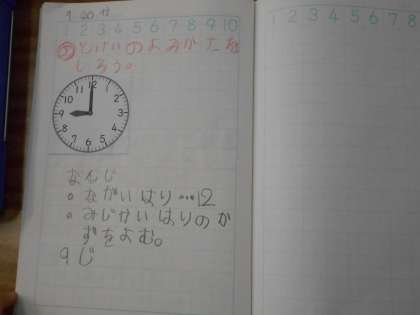 1 2 3 4 5 6 7 8 9 10
とけいのよみかたを
しろう。
12 1 2 3 4 5 6 7 8 9 10 11
なんじ
○ ながいはり…12
○ みじかいはりのか
ずをよむ。
9じ
1 2 3 4 5 6 7 8